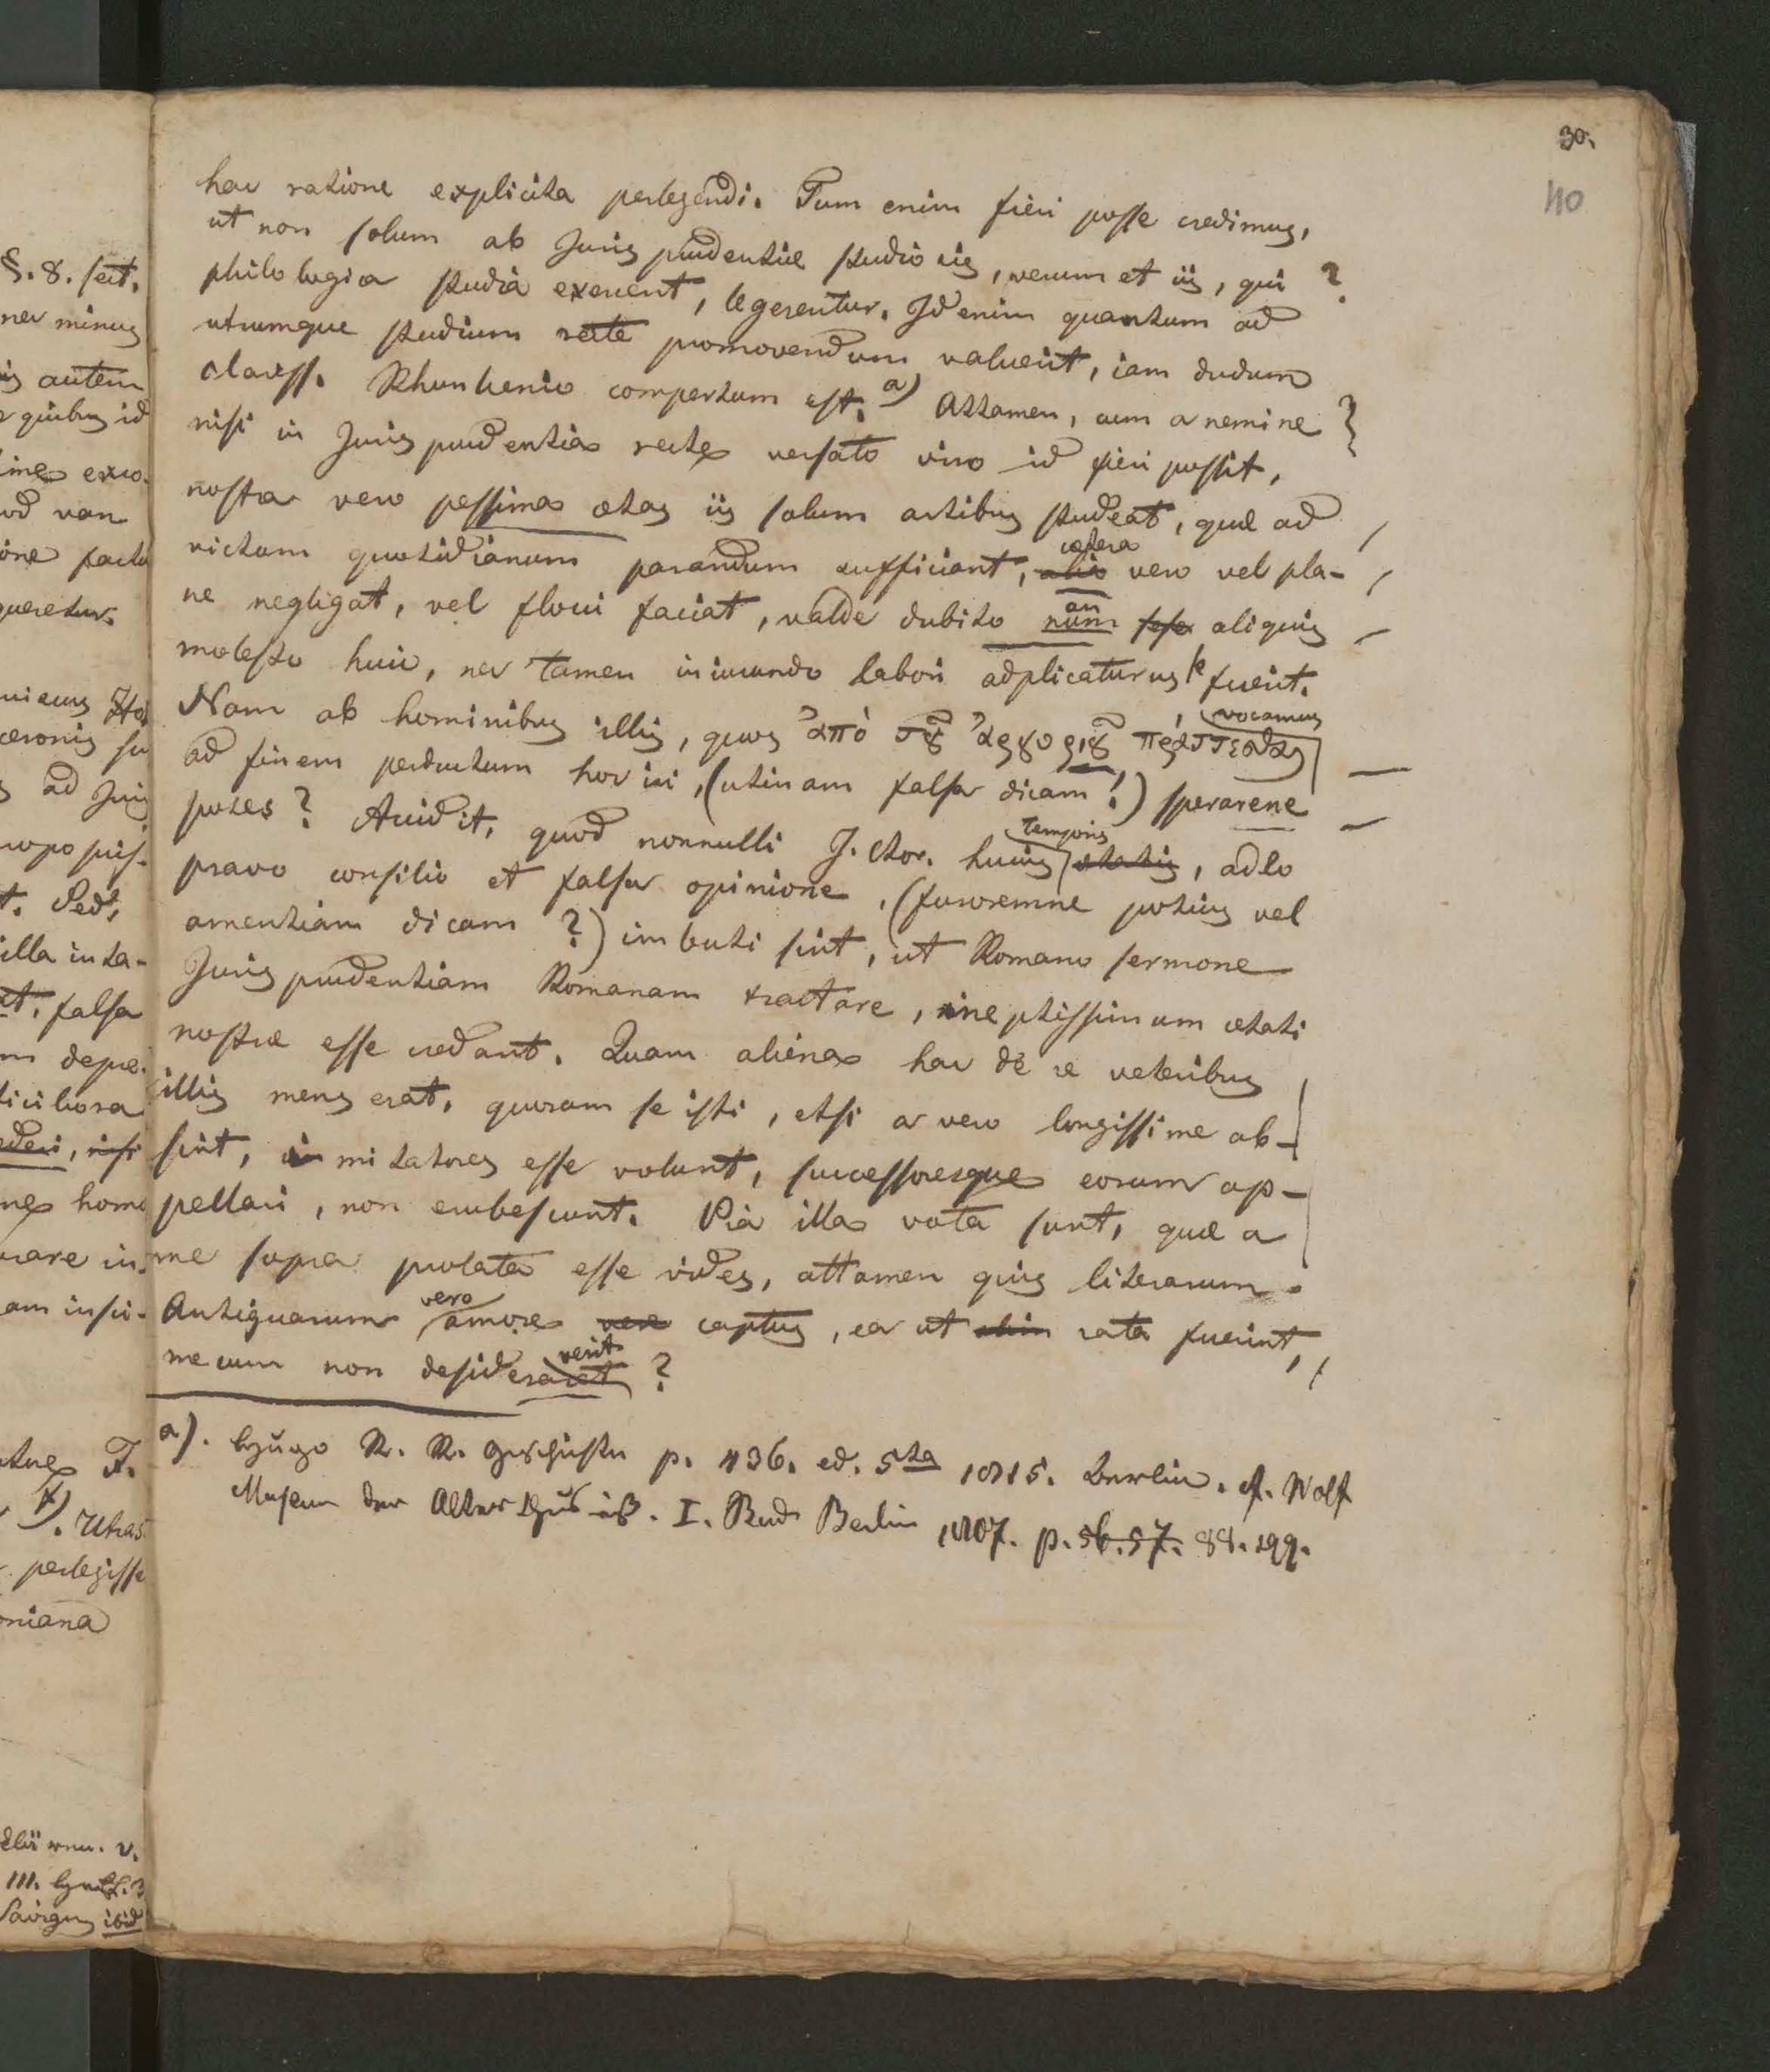 30.
40
hac ratione explicita perlegendi. Tum enim fieri posse credimus,
ut non solum ab Jurisprudentiae studiosis, verum et iis, qui ?
philologia studia exercent, legerentur. Id enim quantum ad
utrumque studium recte promovendum valuerit, iam dudum
clariss. Rhunkenio compertum est. a) Attamen, cum a nemine
nisi in Jurisprudentia recte versato viro id fieri possit,
nostra vero pessima aetas iis solum artibus studeat, quae ad
victum quotidianum parandum sufficiant, alia cetera vero vel pla-
ne negligat, vel flocci faciat, valde dubito num an sese aliquis
molesto huic, nec tamen iniucundo labori adplicaturus se fuerit.
Nam ab hominibus illis, quos ἀπὸ τοῦ ἀργυρίου πράττεσθαι vocamus
ad finem perductum hoc iri, (utinam falsa dicam!) sperarene
potes? Accidit, quod nonnulli J. Ctor. huius aetatis temporis, adeo
pravo consilio et falsa opinione, (furoremne potius vel
amentiam dicam?) imbuti sint, ut Romano sermone
Jurisprudentiam Romanam tractare, ineptissimum aetati
nostrae esse credant. Quam aliena hac de re veteribus
illis mens erat, quorum se isti, etsi a vero longissime ab-
sint, imitatores esse volunt, successoresque eorum ap-
pellari, non erubescunt. Pia illa vota sunt, quae a
me supra prolata esse vides, attamen quis literarum
Antiquarum vero amore vere captus, ea ut rata fuerint,
mecum non desideraret verit ?
a). Hugo R. R. Geschichte p. 436. ed. 5ta 1815. Berlin. cf. Wolf
Museum der Alterthumsw. I. Band Berlin 1807. p. 56. 57. 88. 199.
§. 8.
nec minus
autem
quibus id
queretur.
ad Juris
illa in ta-
falsa
perlegisse
Savigny ibid